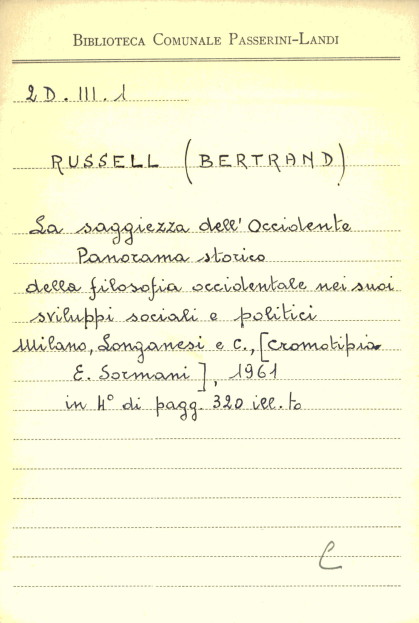 BIBLIOTECA COMUNALE PASSERINI-LANDI
2 D. III. 1
RUSSELL (BERTRAND)
La saggiezza dell'Occidente
Panorama storico
della filosofia occidentale nei suoi
sviluppi sociali e politici
Milano, Longanesi e C., [Cromotipia
E. Sormani], 1961
in 4° di pagg. 320 ill.to
C